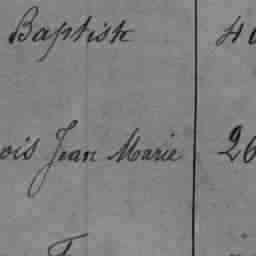 Baptiste 40
ois Jean Marie 26